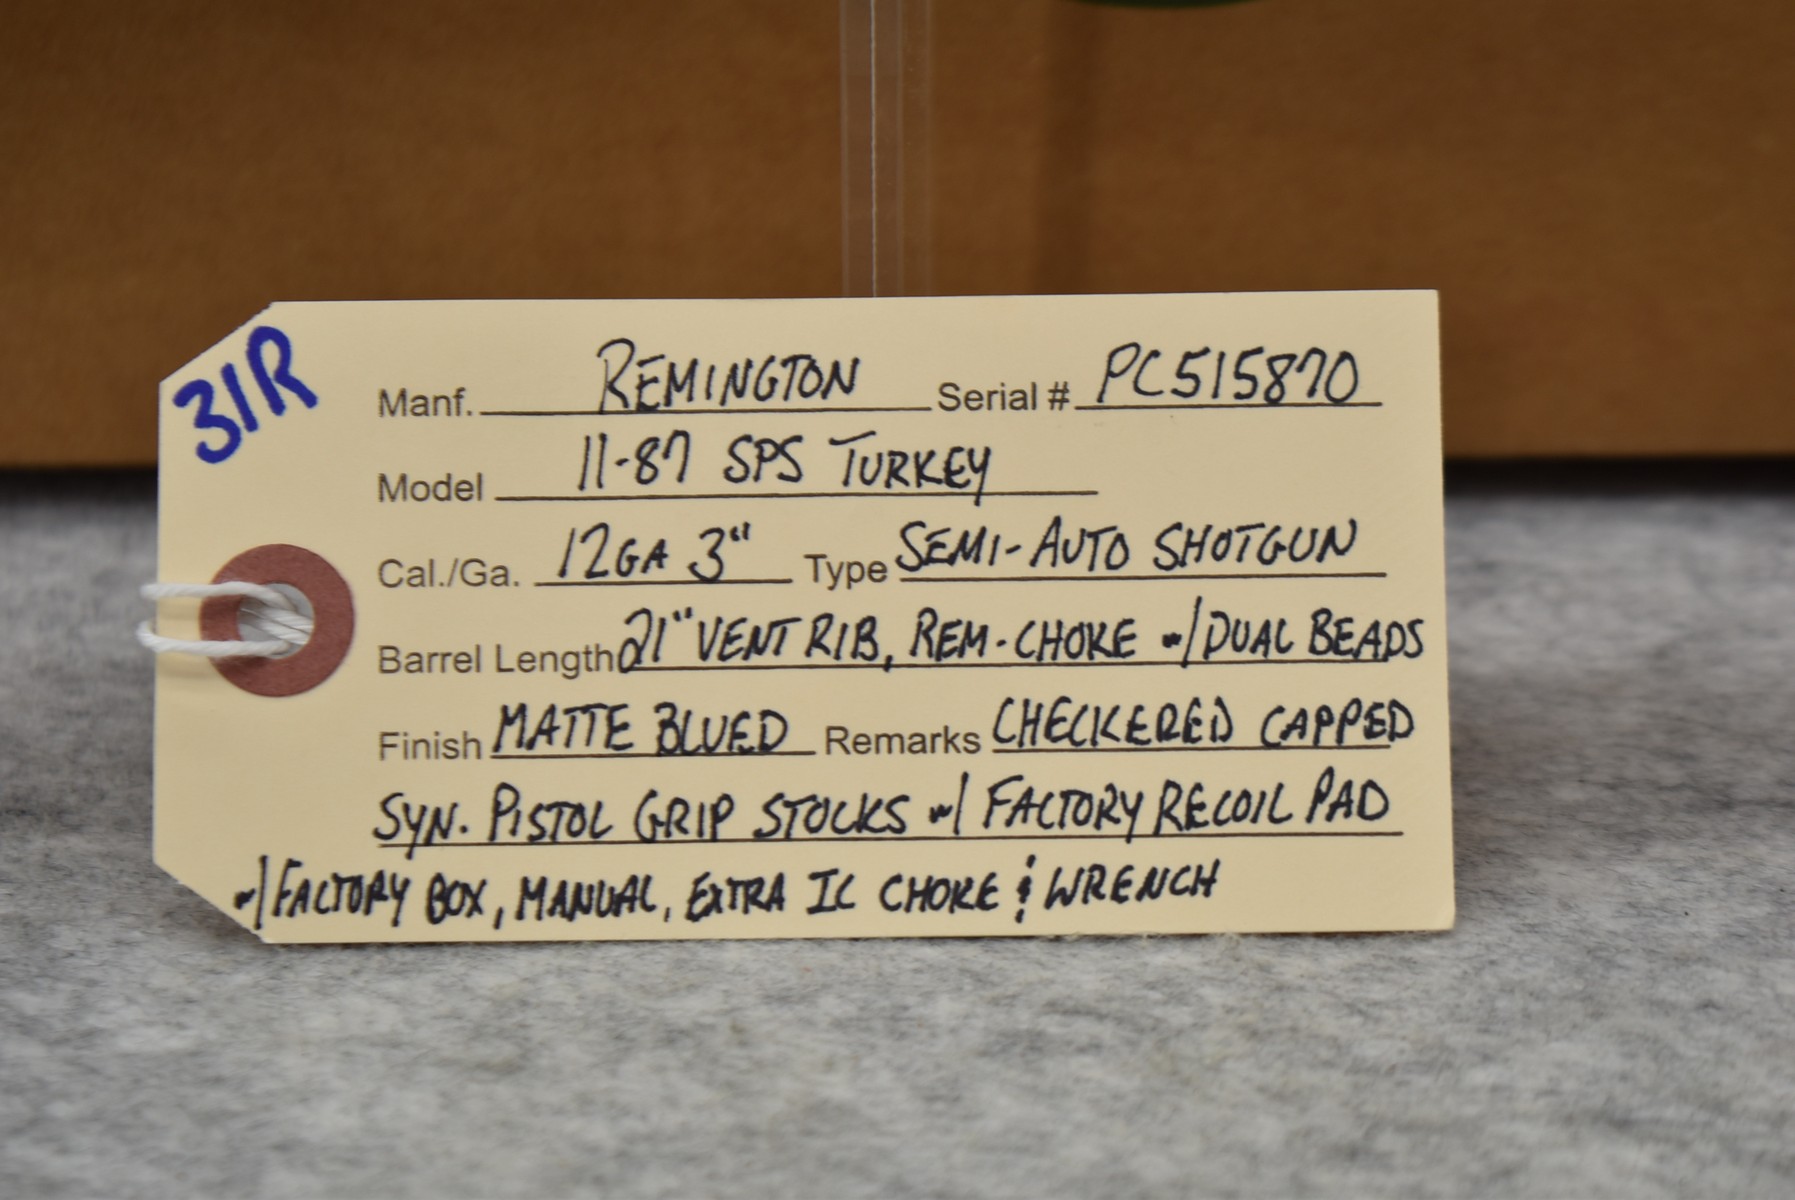 31R
Manf. REMINGTON Serial # PC515870
Model 11-87 SPS TURKEY
Cal./Ga. 12GA 3" Type SEMI-AUTO SHOTGUN
Barrel Length 21" VENT RIB, REM-CHOKE w/ DUAL BEADS
Finish MATTE BLUED Remarks CHECKERED CAPPED
SYN. PISTOL GRIP STOCKS w/ FACTORY RECOIL PAD
w/ FACTORY BOX, MANUAL, EXTRA IC CHOKE & WRENCH